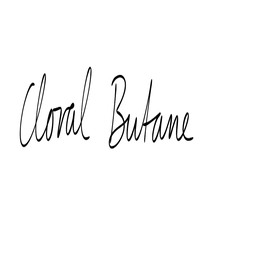 Cloral Butane